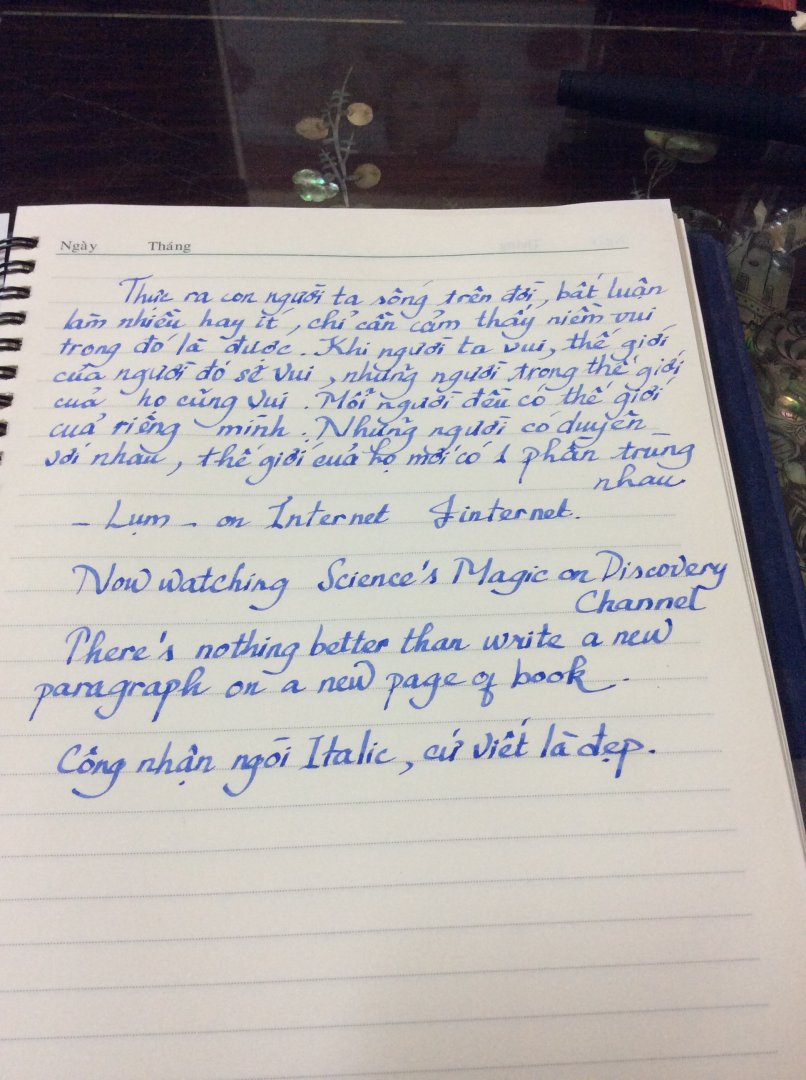 Ngày Tháng
Thực ra con người ta sống trên đời, bất luận
làm nhiều hay ít, chỉ cần cảm thấy niềm vui
trong đó là được. Khi người ta vui, thế giới
của người đó sẽ vui, những người trong thế giới
của họ cũng vui. Mỗi người đều có thế giới
của riêng mình. Những người có duyên
với nhau, thế giới của họ mới có 1 phần trùng
nhau.
- Lụm - on Internet internet.
Now watching Science's Magic on Discovery
Channel
There's nothing better than write a new
paragraph on a new page of book.
Công nhận ngòi Italic, cứ viết là đẹp.